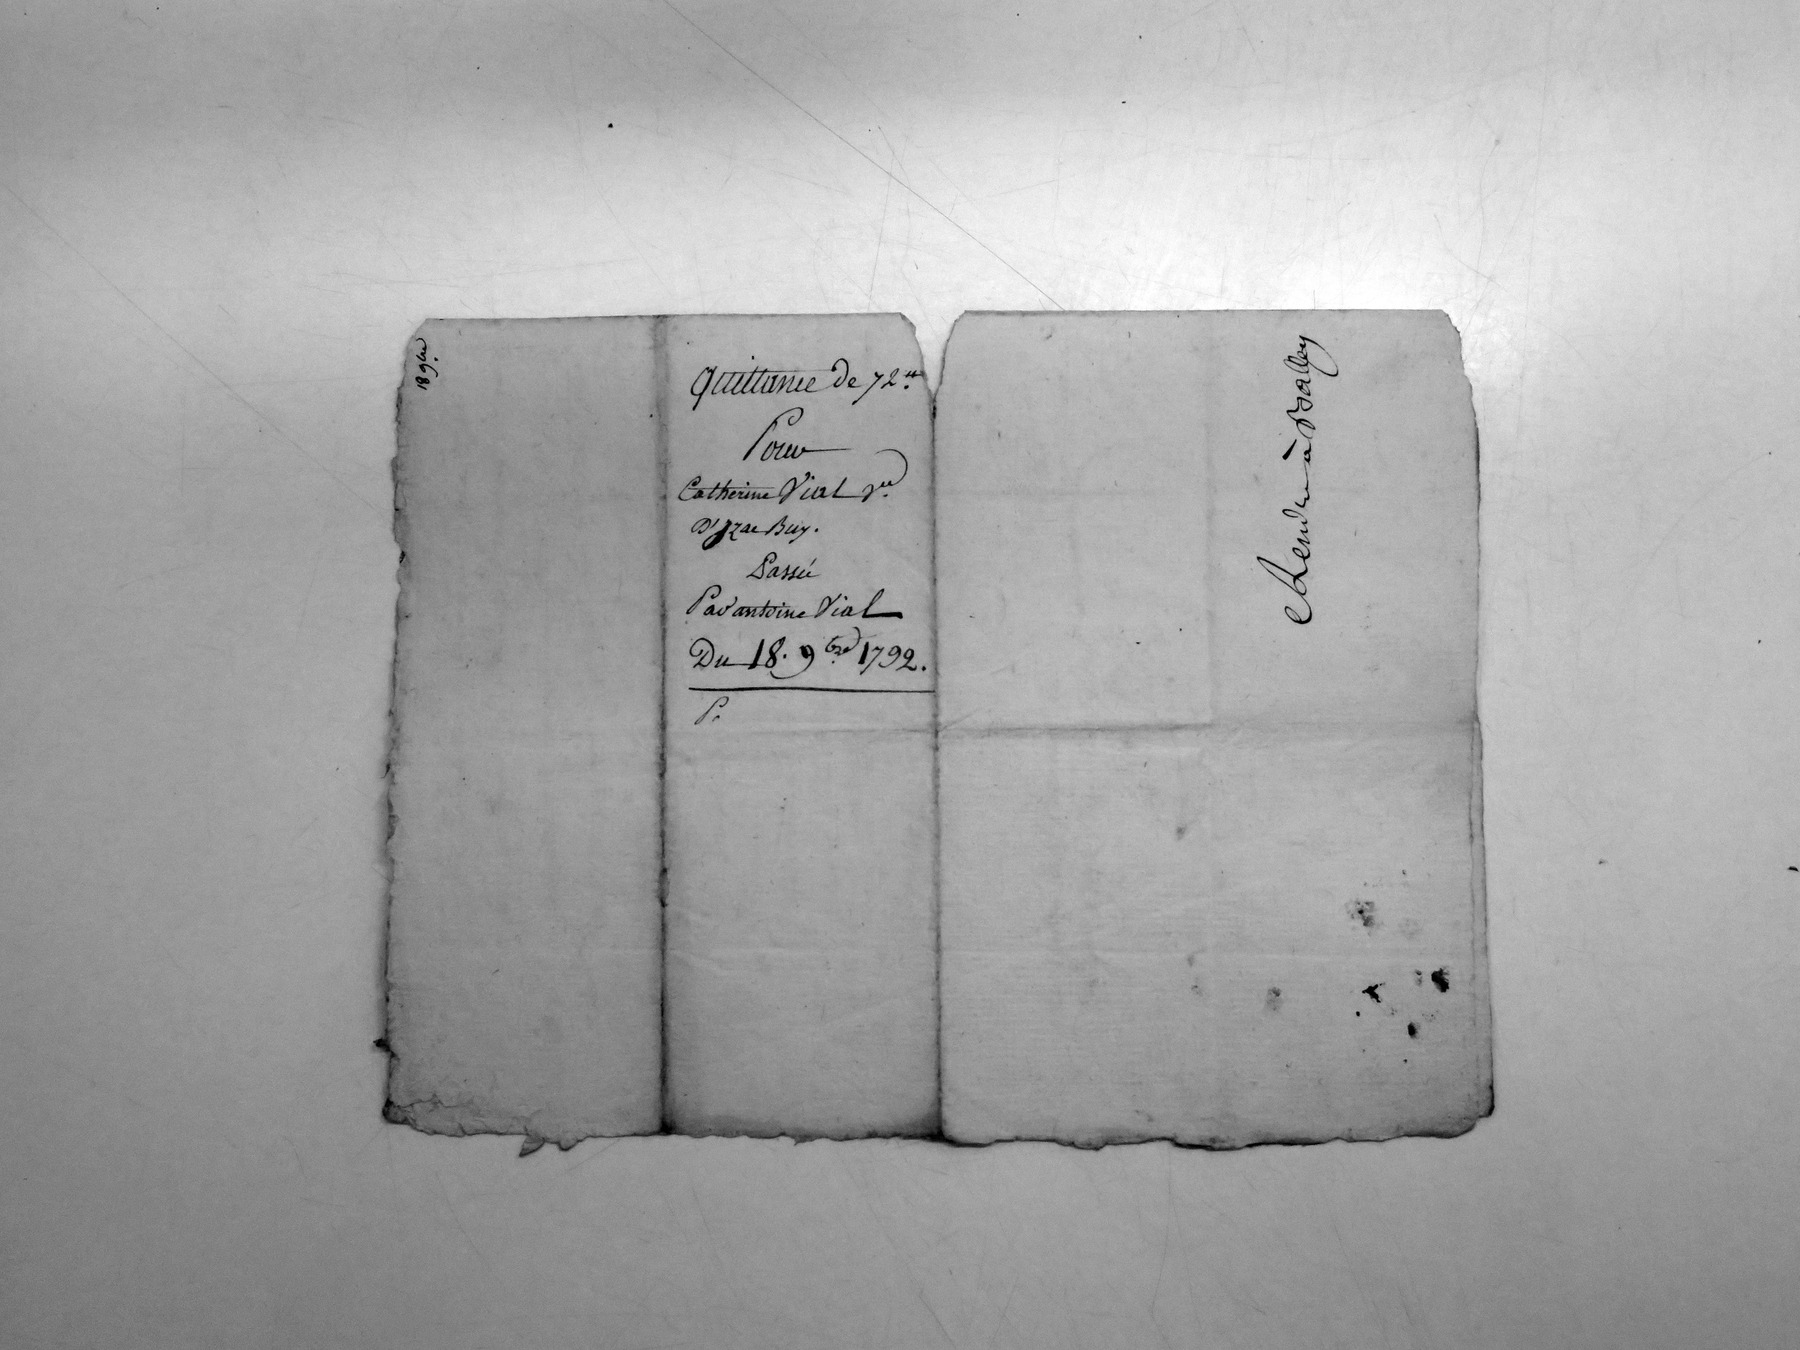 18 9bre
Quittance de 72tt.
Pour
Catherine Vial Vve.
D'Izac Buy.
Passée
Par antoine Vial
Du 18. 9bre 1792.
P.
Rendu à Balley